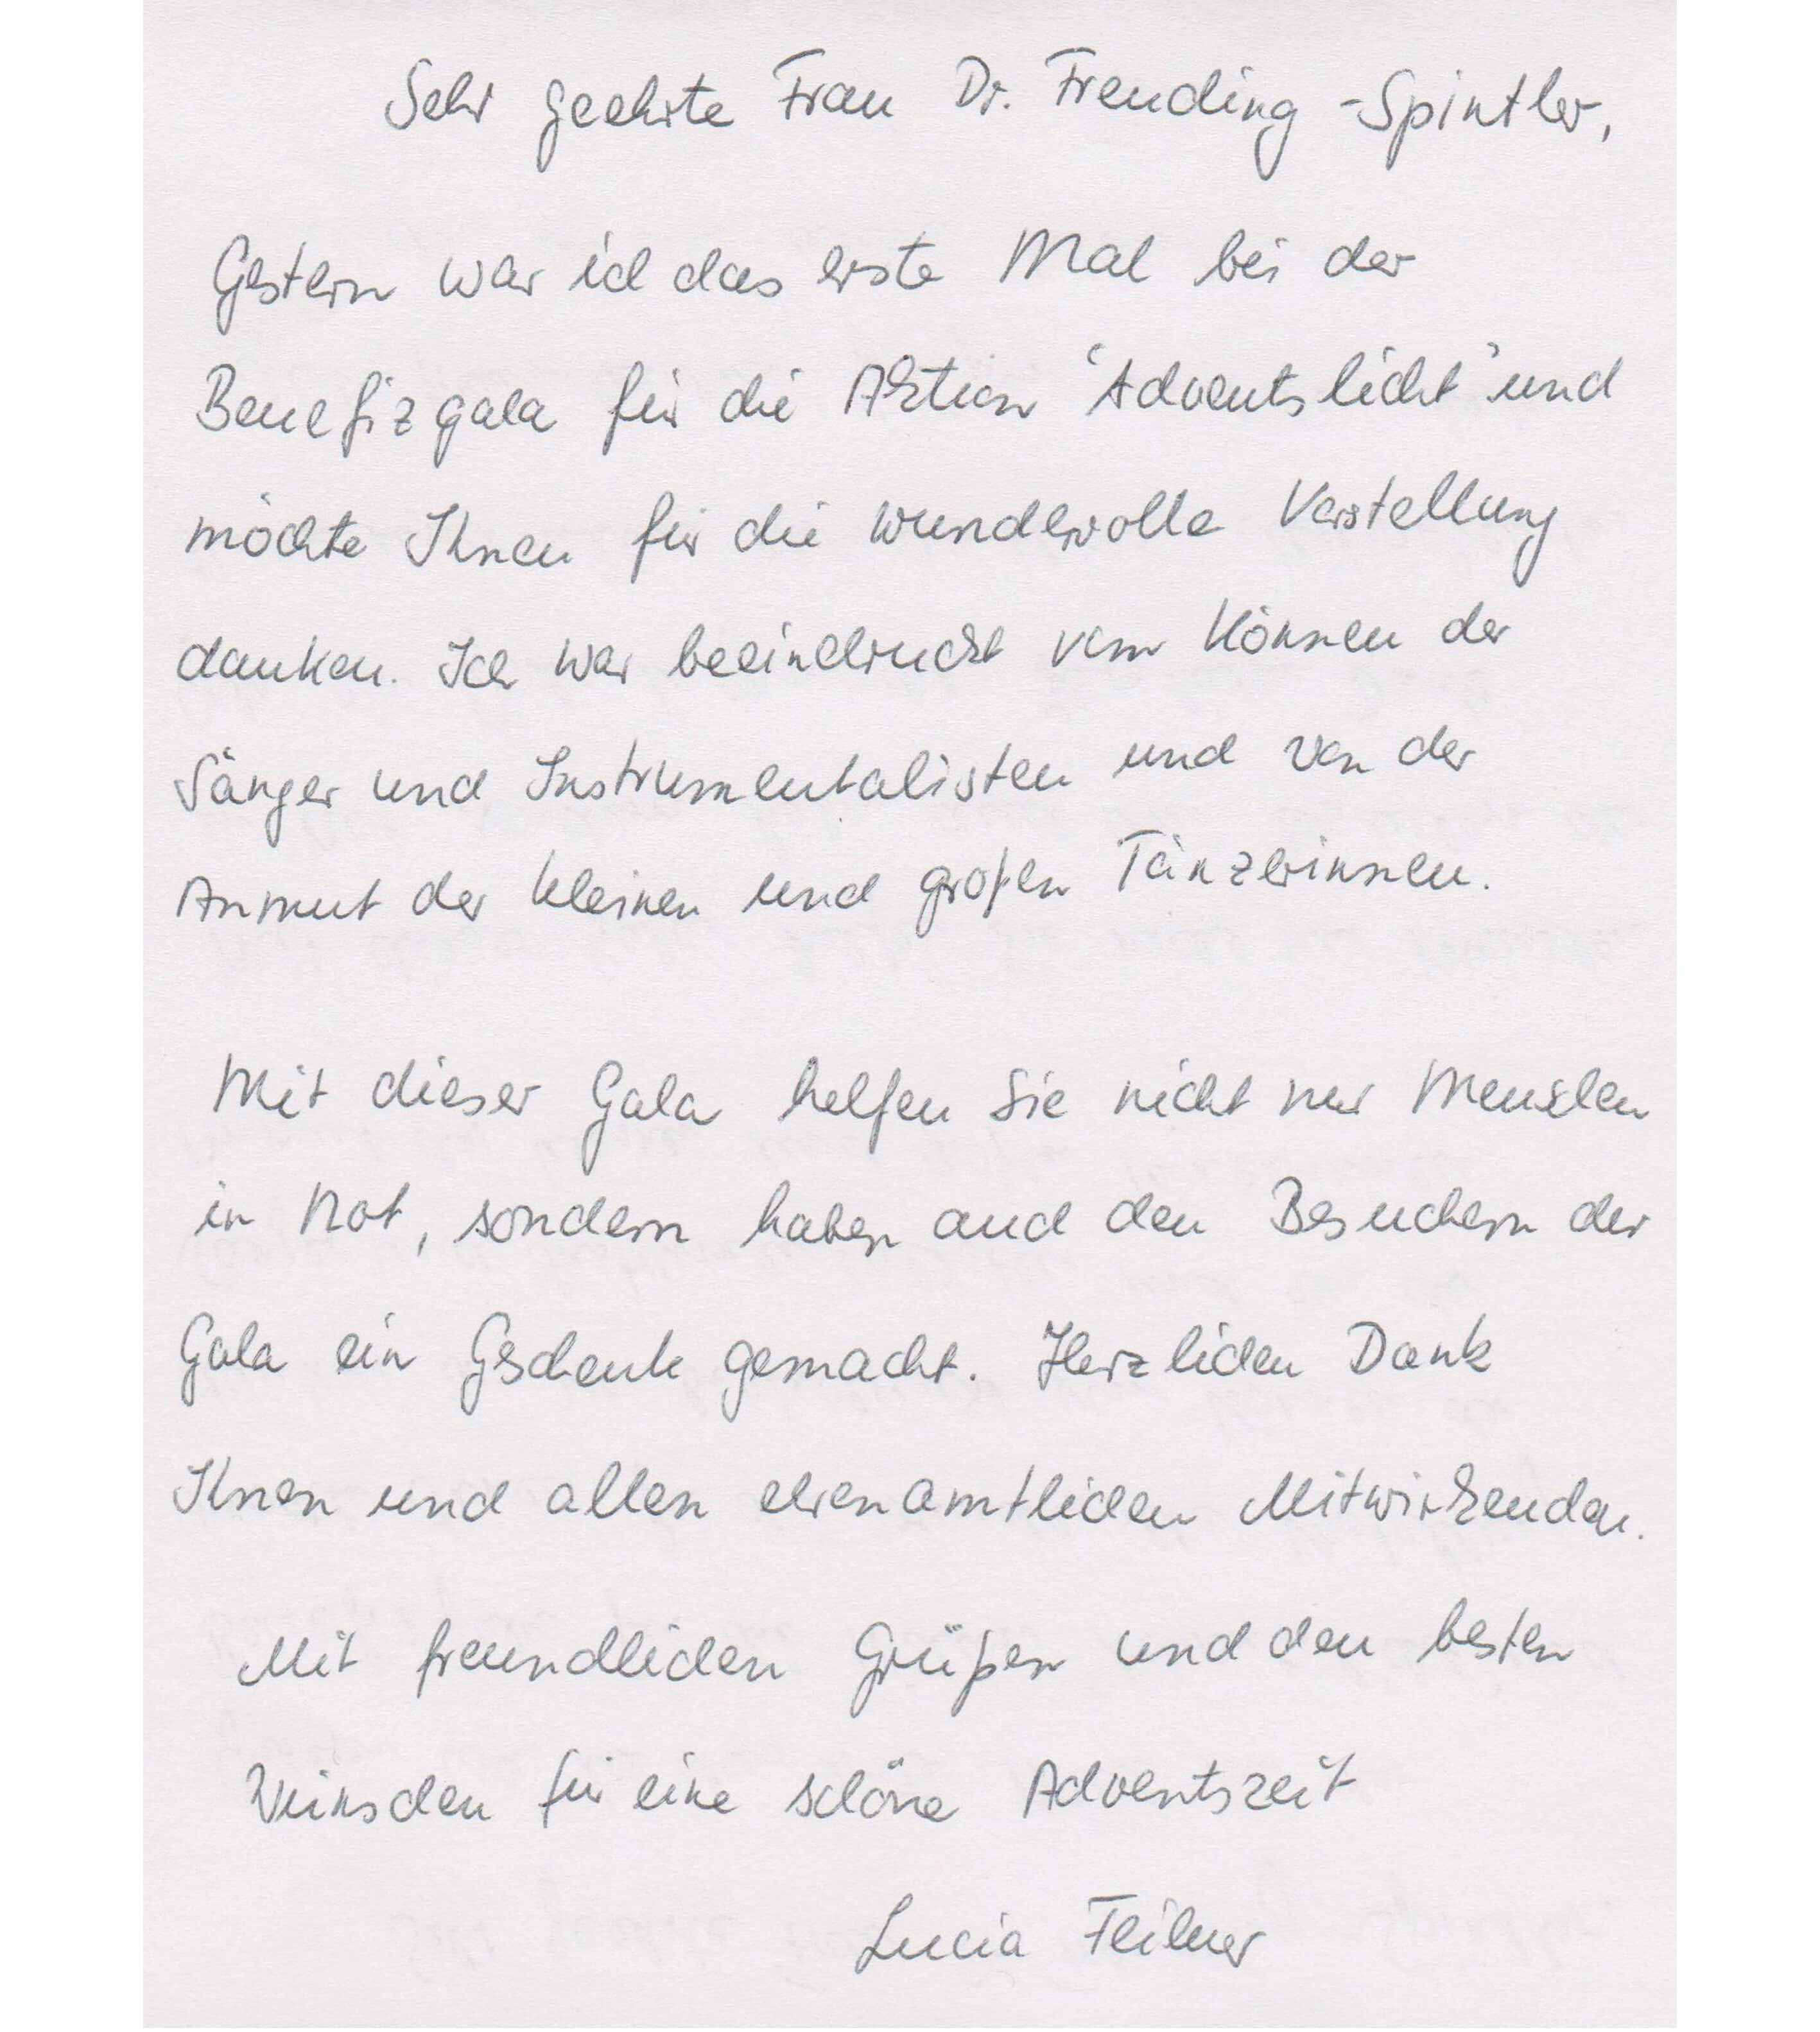 Sehr geehrte Frau Dr. Freuding-Spintler,
Gestern war ich das erste Mal bei der
Benefizgala für die Aktion "Adventslicht" und
möchte Ihnen für die wundervolle Vorstellung
danken. Ich war beeindruckt vom Können der
Sänger und Instrumentalisten und von der
Anmut der kleinen und großen Tänzerinnen.
Mit dieser Gala helfen Sie nicht nur Menschen
in Not, sondern haben auch den Besuchern der
Gala ein Geschenk gemacht. Herzlichen Dank
Ihnen und allen ehrenamtlichen Mitwirkenden.
Mit freundlichen Grüßen und den besten
Wünschen für eine schöne Adventszeit
Lucia Feilner